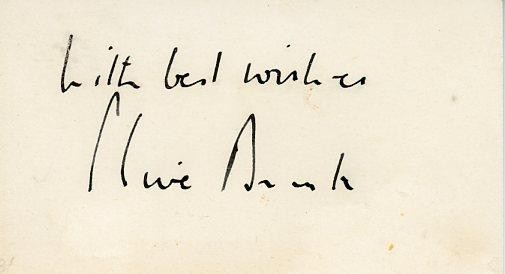 With best wishes
Clive